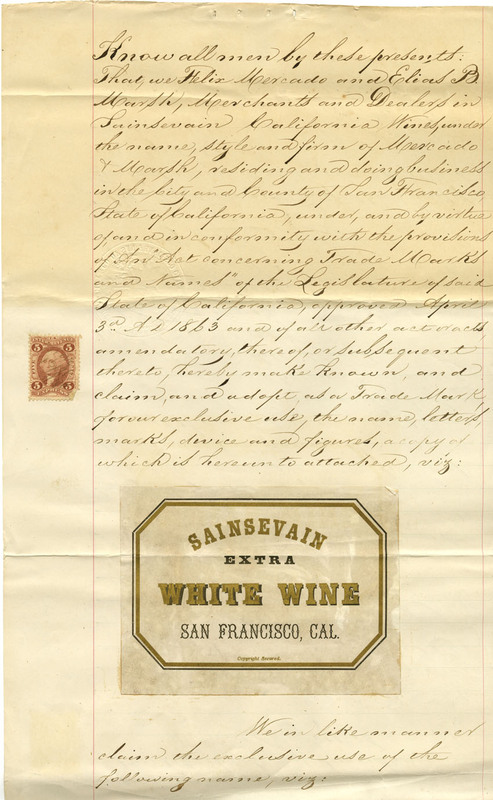 Know all men by these presents:
That, we Felix Mercado and Elias B
Marsh, Merchants and Dealers in
Sainsevain California Wines, under
the name, style and firm of Mercado
& Marsh, residing and doing business
in the City and County of San Francisco
State of California, under, and by virtue
of, and in conformity with the provisions
of "An Act concerning Trade Marks
and Names" of the Legislature of said
State of California, approved April
3rd A D 1863 and of all other act or acts
amendatory, thereof, or subsequent
thereto, hereby make known, and
claim, and adopt, as a Trade Mark
for our exclusive use, the name, letters
marks, device and figures, a copy of
which is hereunto attached, viz:
5 5
5 5
SAINSEVAIN
EXTRA
WHITE WINE
SAN FRANCISCO, CAL.
Copyright Secured.
We in like manner
claim the exclusive use of the
following name, viz: